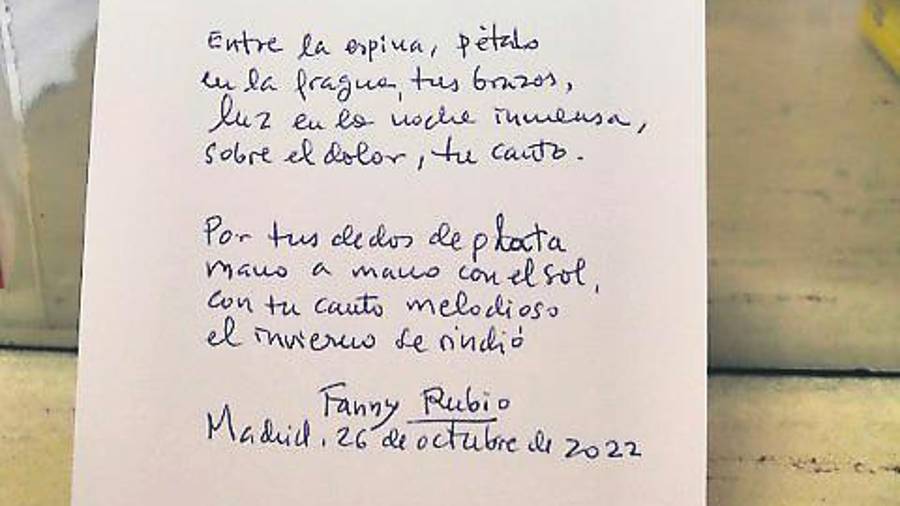 Entre la espina, pétalo
en la fragua, tus brazos,
luz en la noche inmensa,
sobre el dolor, tu canto.
Por tus dedos de plata
mano a mano con el sol,
con tu canto melodioso
el invierno se rindió
Fanny Rubio
Madrid, 26 de octubre de 2022